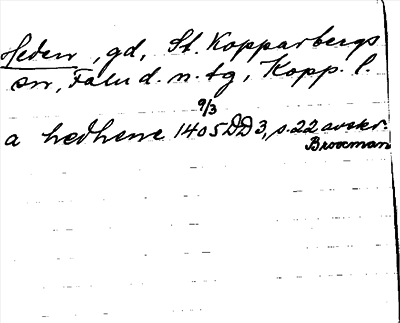 Heden, gd, St. Kopparbergs
sn, Falu d. n. tg, Kopp. l.
9/3
a hedhene 1405 DD 3, s. 22 avskr.
Brocman